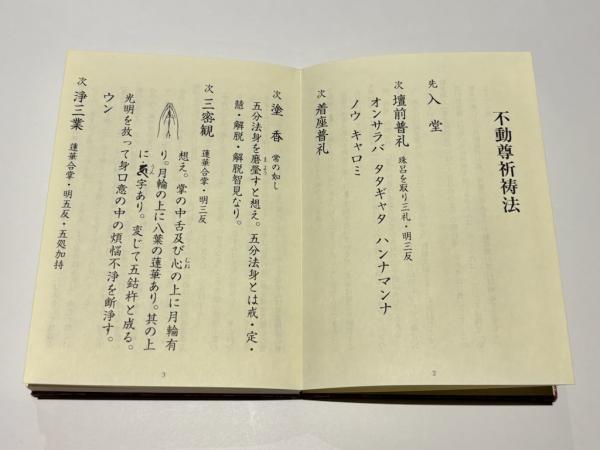 不動尊祈祷法
先 入堂
次 壇前普礼 珠呂を取り三礼・明三反
オンサラバ タタギャタ ハンナマンナ
ノウ キャロミ
次 着座普礼
2
次 塗香 常の如し
五分法身を磨瑩すと想え。五分法身とは戒・定・
慧・解脱・解脱智見なり。
次 三密観 蓮華合掌・明三反
想え。掌の中舌及び心の上に月輪有
り。月輪の上に八葉の蓮華あり。其の上
に 字あり。変じて五鈷杵と成る。
光明を放って身口意の中の煩悩不浄を断浄す。
ウン
次 浄三業 蓮華合掌・明五反・五処加持
3